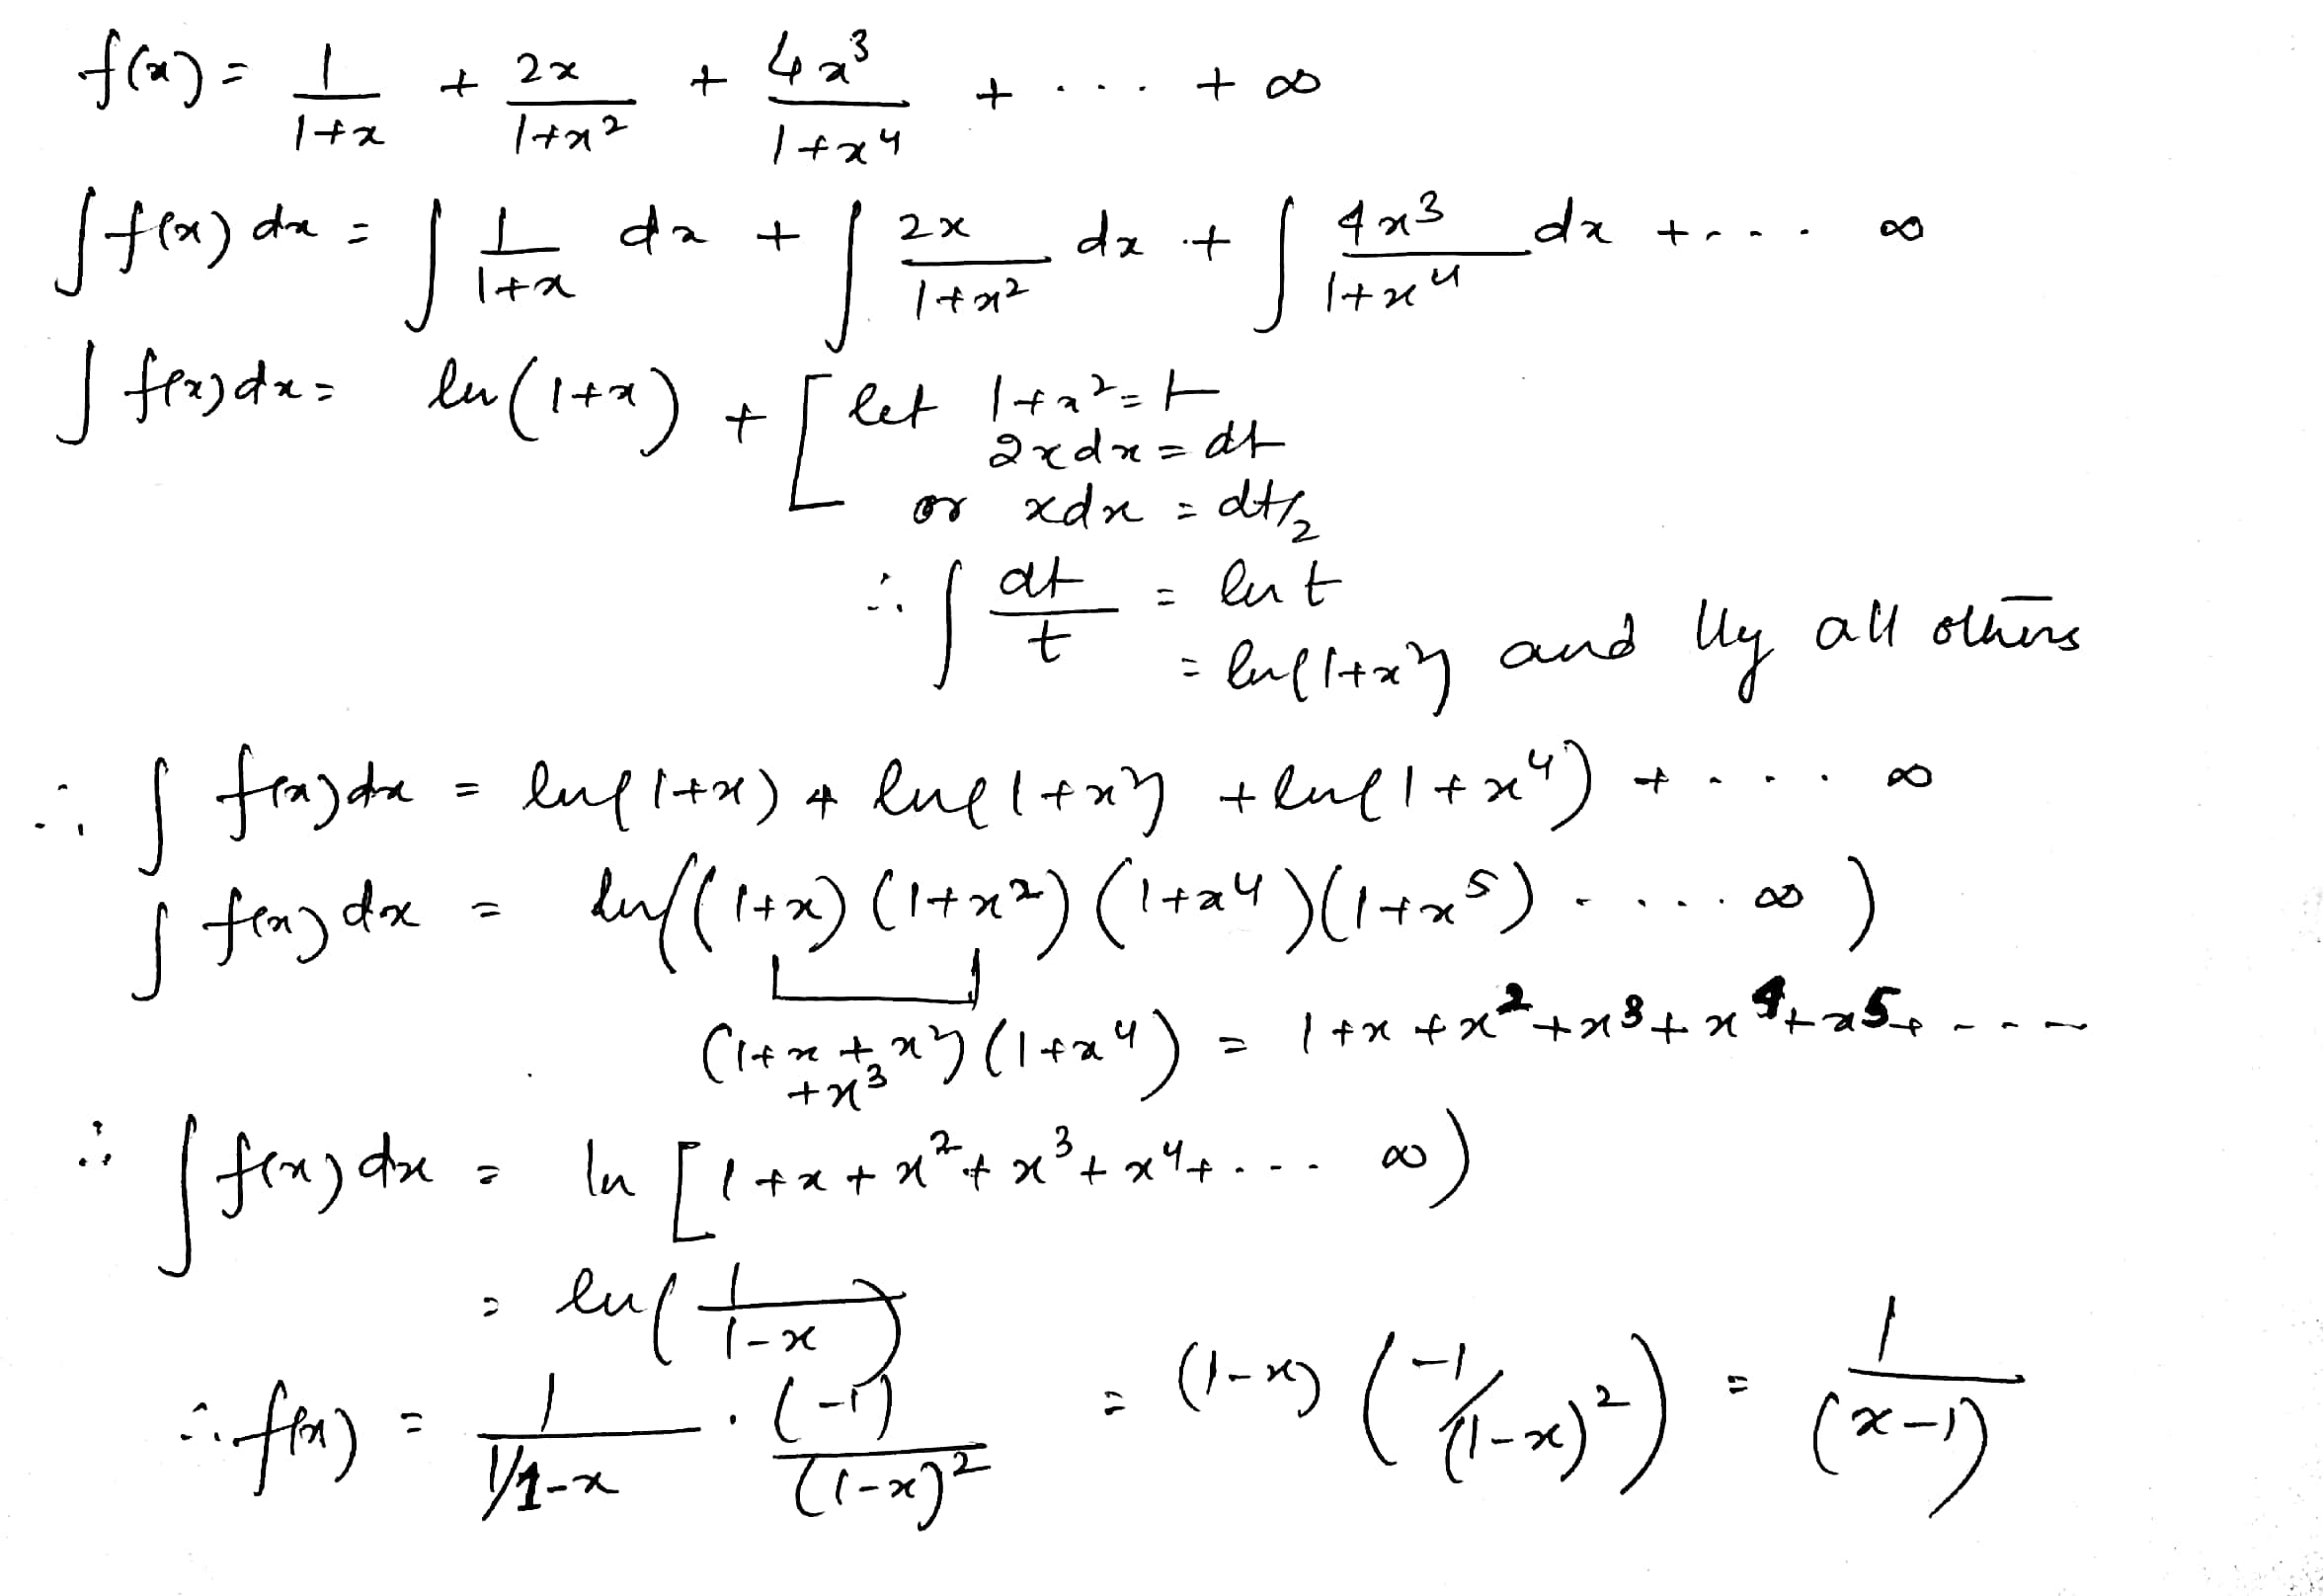 f(x) = 1/(1+x) + 2x/(1+x²) + 4x³/(1+x⁴) + ... + ∞
∫ f(x) dx = ∫ 1/(1+x) dx + ∫ 2x/(1+x²) dx + ∫ 4x³/(1+x⁴) dx + .... ∞
∫ f(x) dx = ln(1+x) + [ let 1+x² = t
2x dx = dt
or x dx = dt/2
∴ ∫ dt/t = ln t
= ln(1+x²) and lly all others
∴ ∫ f(x) dx = ln(1+x) + ln(1+x²) + ln(1+x⁴) + .... ∞
∫ f(x) dx = ln((1+x)(1+x²)(1+x⁴)(1+x⁵) ..... ∞)
(1+x+x²+x³)(1+x⁴) = 1+x+x²+x³+x⁴+x⁵+ ----
∴ ∫ f(x) dx = ln [1+x+x²+x³+x⁴+.... ∞)
= ln(1/(1-x))
∴ f(x) = 1/(1/1-x) · (-1)/(1-x)² = (1-x)(-1/(1-x)²) = 1/(x-1)